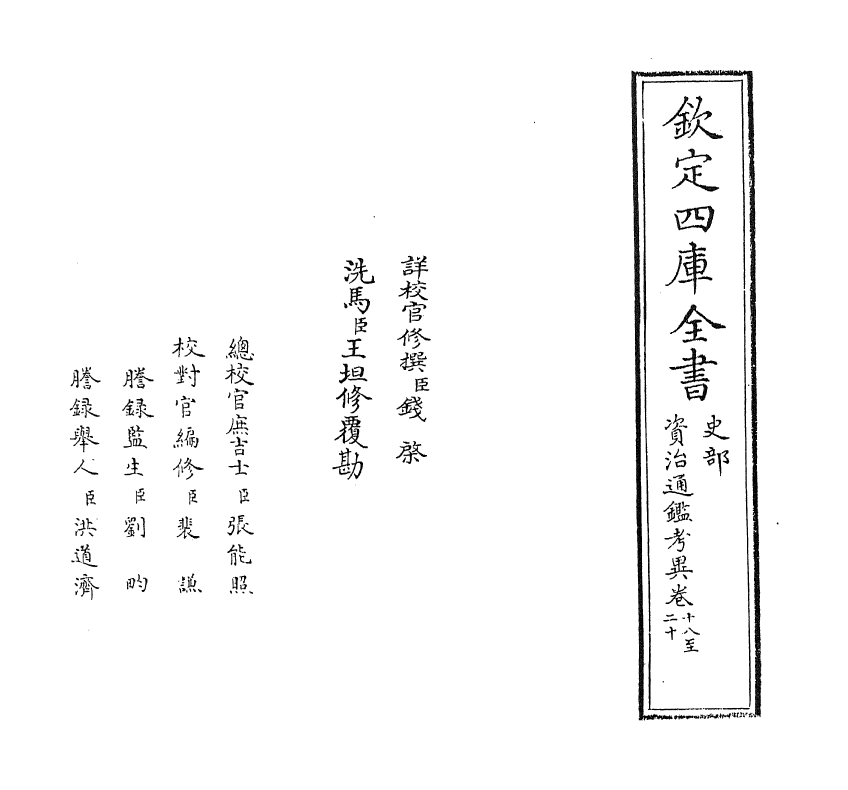 欽定四庫全書
史部
資治通鑑考異卷十八至二十
詳校官修撰臣錢棨
洗馬臣王坦修覆勘
總校官庶吉士臣張能照
校對官編修臣裴謙
謄錄監生臣劉昀
謄錄舉人臣洪道濟